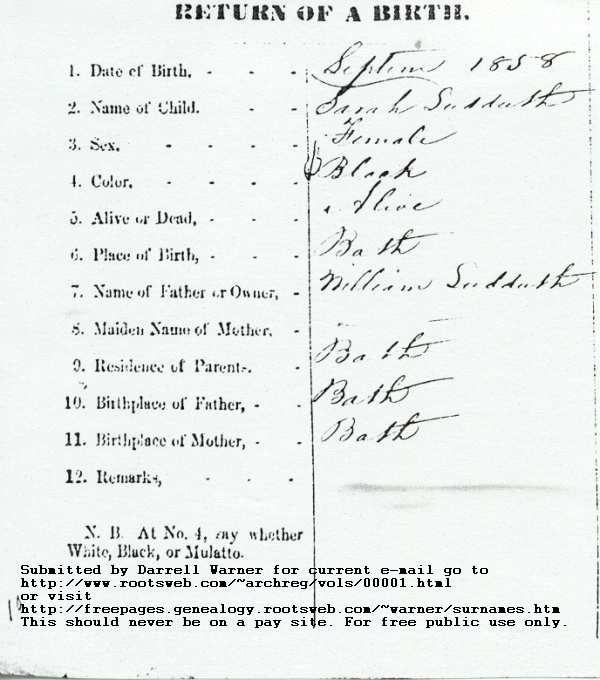 RETURN OF A BIRTH.
1. Date of Birth, - - - Septem 1858
2. Name of Child. - - Sarah Sudduth
3. Sex, - - - - Female
4. Color, - - - - Black
5. Alive or Dead, - - - Alive
6. Place of Birth, - - - Bath
7. Name of Father or Owner, - William Sudduth
8. Maiden Name of Mother, -
9. Residence of Parents. - Bath
10. Birthplace of Father, - - Bath
11. Birthplace of Mother, - - Bath
12. Remarks, - - -
N. B. At No. 4, say whether
White, Black, or Mulatto.
Submitted by Darrell Warner for current e-mail go to
http://www.rootsweb.com/~archreg/vols/00001.html
or visit
http://freepages.genealogy.rootsweb.com/~warner/surnames.htm
This should never be on a pay site. For free public use only.